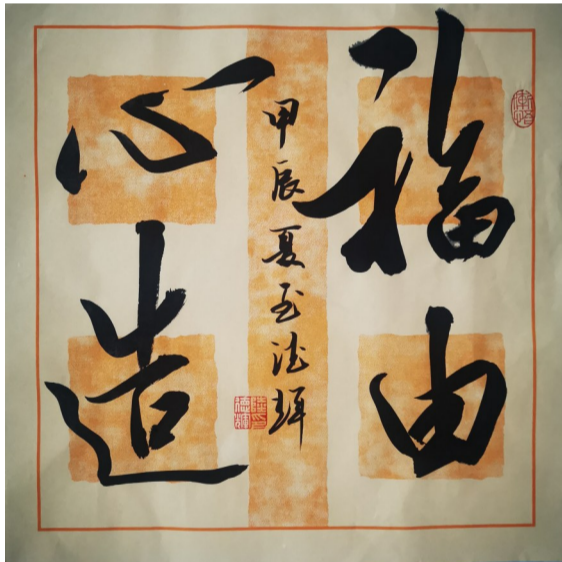 福由
心造
甲辰夏至德辉